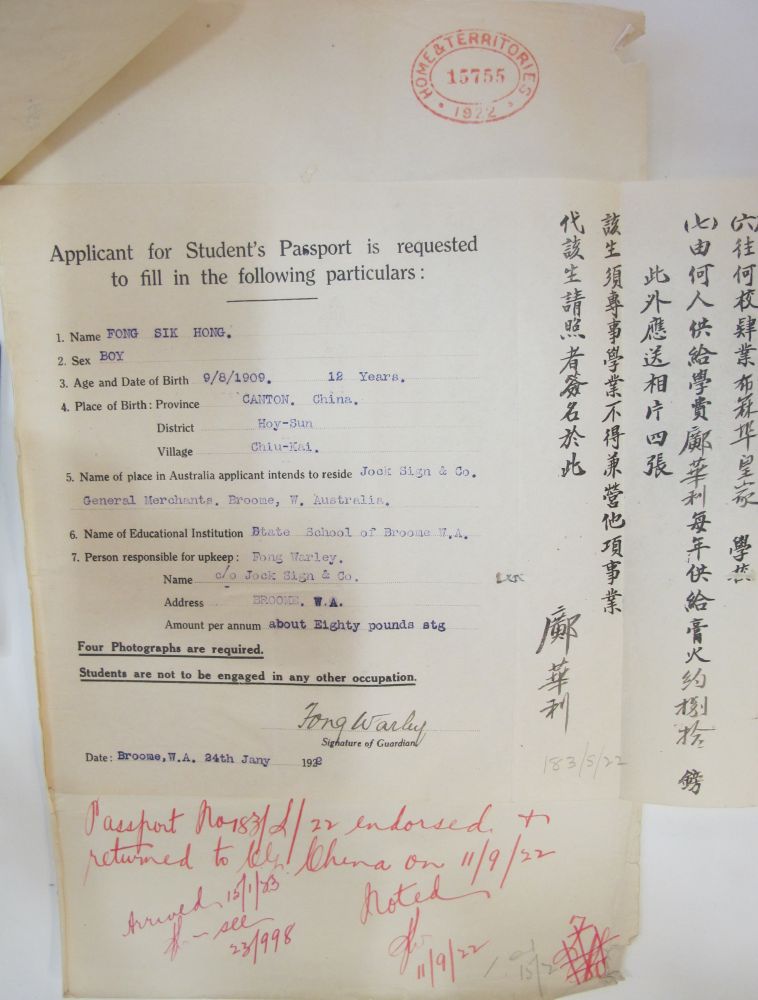 HOME & TERRITORIES
15755
1922
Applicant for Student's Passport is requested
to fill in the following particulars:
1. Name FONG SIK HONG.
2. Sex BOY
3. Age and Date of Birth 9/8/1909. 12 Years.
4. Place of Birth: Province CANTON. China.
District Hoy-Sun
Village Chiu-Kai.
5. Name of place in Australia applicant intends to reside Jock Sign & Co.
General Merchants. Broome, W. Australia.
6. Name of Educational Institution State School of Broome W.A.
7. Person responsible for upkeep: Fong Warley.
Name c/o Jock Sign & Co.
Address BROOME. W.A.
Amount per annum about Eighty pounds stg
Four Photographs are required.
Students are not to be engaged in any other occupation.
Fong Warley
Signature of Guardian
Date: Broome, W.A. 24th Jany 1922
(六)往何校肄業布霖埠皇家 學
(七)由何人供給學費鄺華利每年供給膏火約捌拾 鎊
此外應送相片四張
該生須專事學業不得兼營他項事業
代該生請照者簽名於此
鄺華利
183/S/22
Passport No 183/S/22 endorsed &
returned to China on 11/9/22
Arrived 15/1/23
- see
23/998
Noted
11/9/22